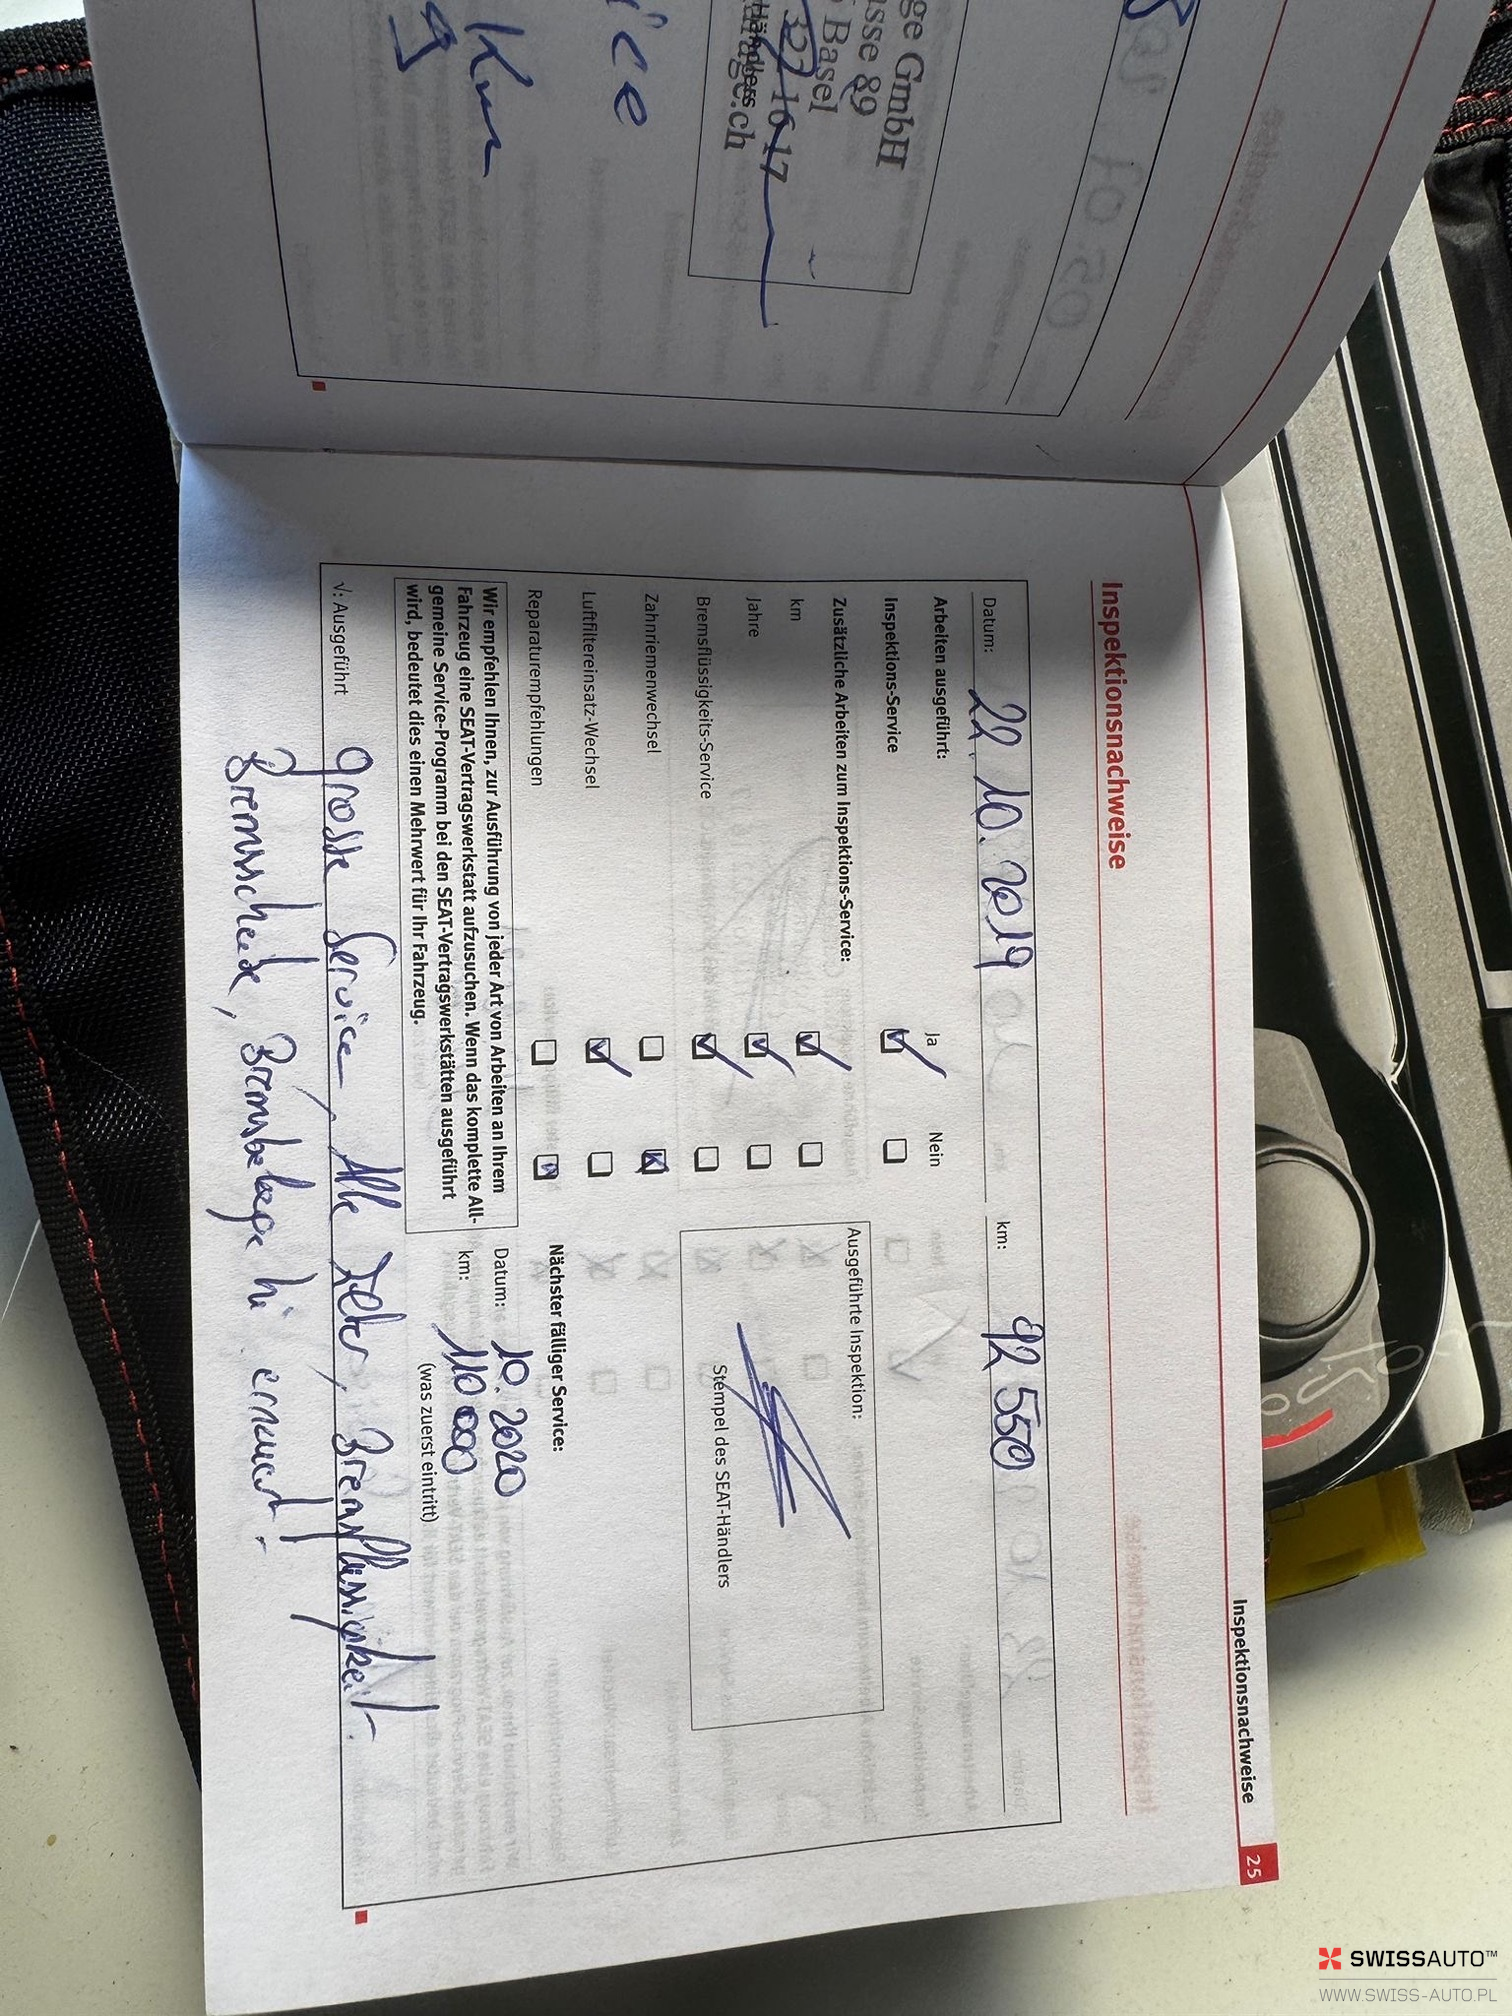 ge GmbH
sse 89
Basel
322 16 17
Händlers
age.ch
ice
Km
Inspektionsnachweise
25
Inspektionsnachweise
Datum: 22.10.2019 km: 92 550
Arbeiten ausgeführt: Ja Nein
Inspektions-Service
Zusätzliche Arbeiten zum Inspektions-Service:
km
Jahre
Bremsflüssigkeits-Service
Zahnriemenwechsel
Luftfiltereinsatz-Wechsel
Reparaturempfehlungen
Ausgeführte Inspektion:
Stempel des SEAT-Händlers
Nächster fälliger Service:
Datum: 10.2020
km: 110 000
(was zuerst eintritt)
Wir empfehlen Ihnen, zur Ausführung von jeder Art von Arbeiten an Ihrem
Fahrzeug eine SEAT-Vertragswerkstatt aufzusuchen. Wenn das komplette All-
gemeine Service-Programm bei den SEAT-Vertragswerkstätten ausgeführt
wird, bedeutet dies einen Mehrwert für Ihr Fahrzeug.
√: Ausgeführt
grosse Service, Alle Filter, Bremsflüssigkeit.
Bremsscheibe, Bremsbeläge hi erneuert!
SWISSAUTO™
WWW.SWISS-AUTO.PL